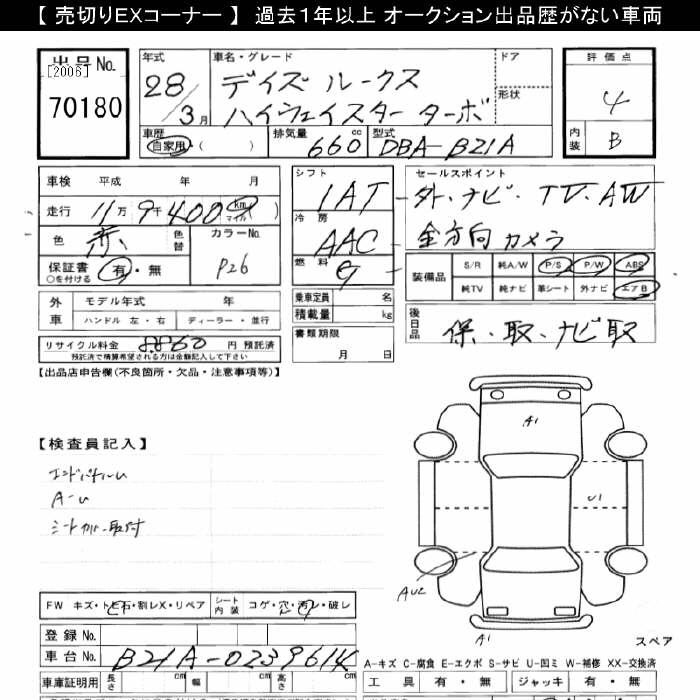 【 売切りEXコーナー 】 過去1年以上 オークション出品歴がない車両
出品No.
[2006]
70180
年式
28/3月
車名・グレード
デイズ ルークス
ハイウェイスター ターボ
ドア
形状
評価点
4
内装
B
車歴
自家用・( )
排気量
660 cc
型式
DBA-B21A
車検 平成 年 月
走行 11万9千400 (km マイル)
色 赤 色替
カラーNo.
P26
保証書 有・無
○を付ける
外車 モデル年式 年
ハンドル 左・右 ディーラー・並行
リサイクル料金 8860 円 預託済
預託済で精算希望される方は金額記入して下さい
シフト
IAT
冷房
AAC
燃料
G
乗車定員 名
積載量 kg
書類期限
月 日
セールスポイント
外・ナビ・TV・AW
全方向カメラ
装備品
S/R 純A/W P/S P/W ABS
純TV 純ナビ 革シート 外ナビ エアB
後日品
保・取・ナビ取
【出品店申告欄(不良箇所・欠品・注意事項等)】
【検査員記入】
A-U
シートカバー取付
A1
U1
AU2
A1
スペア
FW キズ・トビ石・割レX・リペア
シート内装 コゲ・穴・汚レ・破レ
登録No.
車台No. B21A-0239614
車庫証明用 長さ cm 幅 cm 高さ cm
A-キズ C-腐食 E-エクボ S-サビ U-凹ミ W-補修 XX-交換済
工具 有・無 ジャッキ 有・無